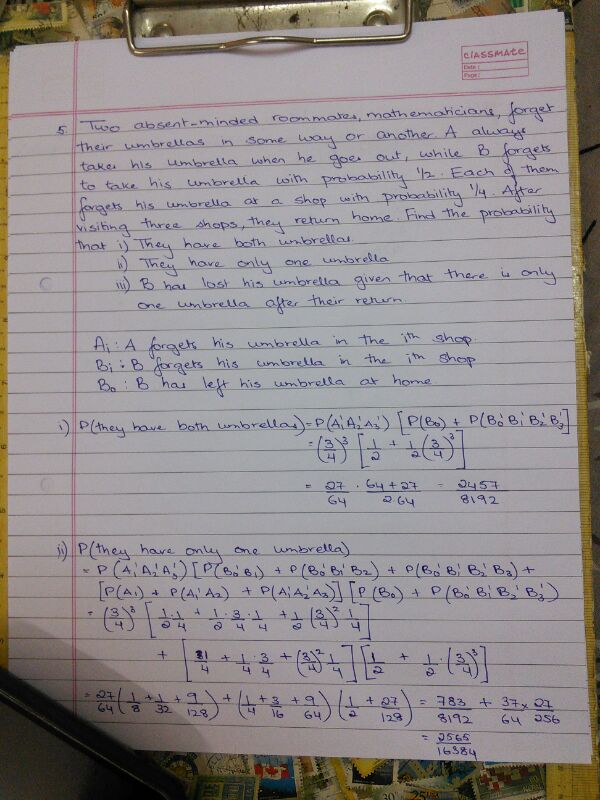 classmate
Date :
Page :
5. Two absent-minded roommates, mathematicians, forget
their umbrellas in some way or another. A always
takes his umbrella when he goes out, while B forgets
to take his umbrella with probability 1/2. Each of them
forgets his umbrella at a shop with probability 1/4. After
visiting three shops, they return home. Find the probability
that i) They have both umbrellas.
ii) They have only one umbrella
iii) B has lost his umbrella given that there is only
one umbrella after their return.
Ai : A forgets his umbrella in the ith shop.
Bi : B forgets his umbrella in the ith shop
B0 : B has left his umbrella at home.
i) P(they have both umbrellas) = P(A1'A2'A3') [P(B0) + P(B0'B1'B2'B3')]
= (3/4)^3 [1/2 + 1/2 (3/4)^3]
= 27/64 . 64+27/2.64 = 2457/8192
ii) P(they have only one umbrella)
= P(A1'A2'A3') [P(B0'B1) + P(B0'B1'B2) + P(B0'B1'B2'B3) +
[P(A1) + P(A1'A2) + P(A1'A2'A3)] [P(B0) + P(B0'B1'B2'B3')
= (3/4)^3 [1/2 1/4 + 1/2 . 3/4 . 1/4 + 1/2 (3/4)^2 1/4]
+ [1/4 + 1/4 3/4 + (3/4)^2 1/4] [1/2 + 1/2 . (3/4)^3]
= 27/64 (1/8 + 1/32 + 9/128) + (1/4 + 3/16 + 9/64) (1/2 + 27/128) = 783/8192 + 37/64 x 27/256
= 2565/16384